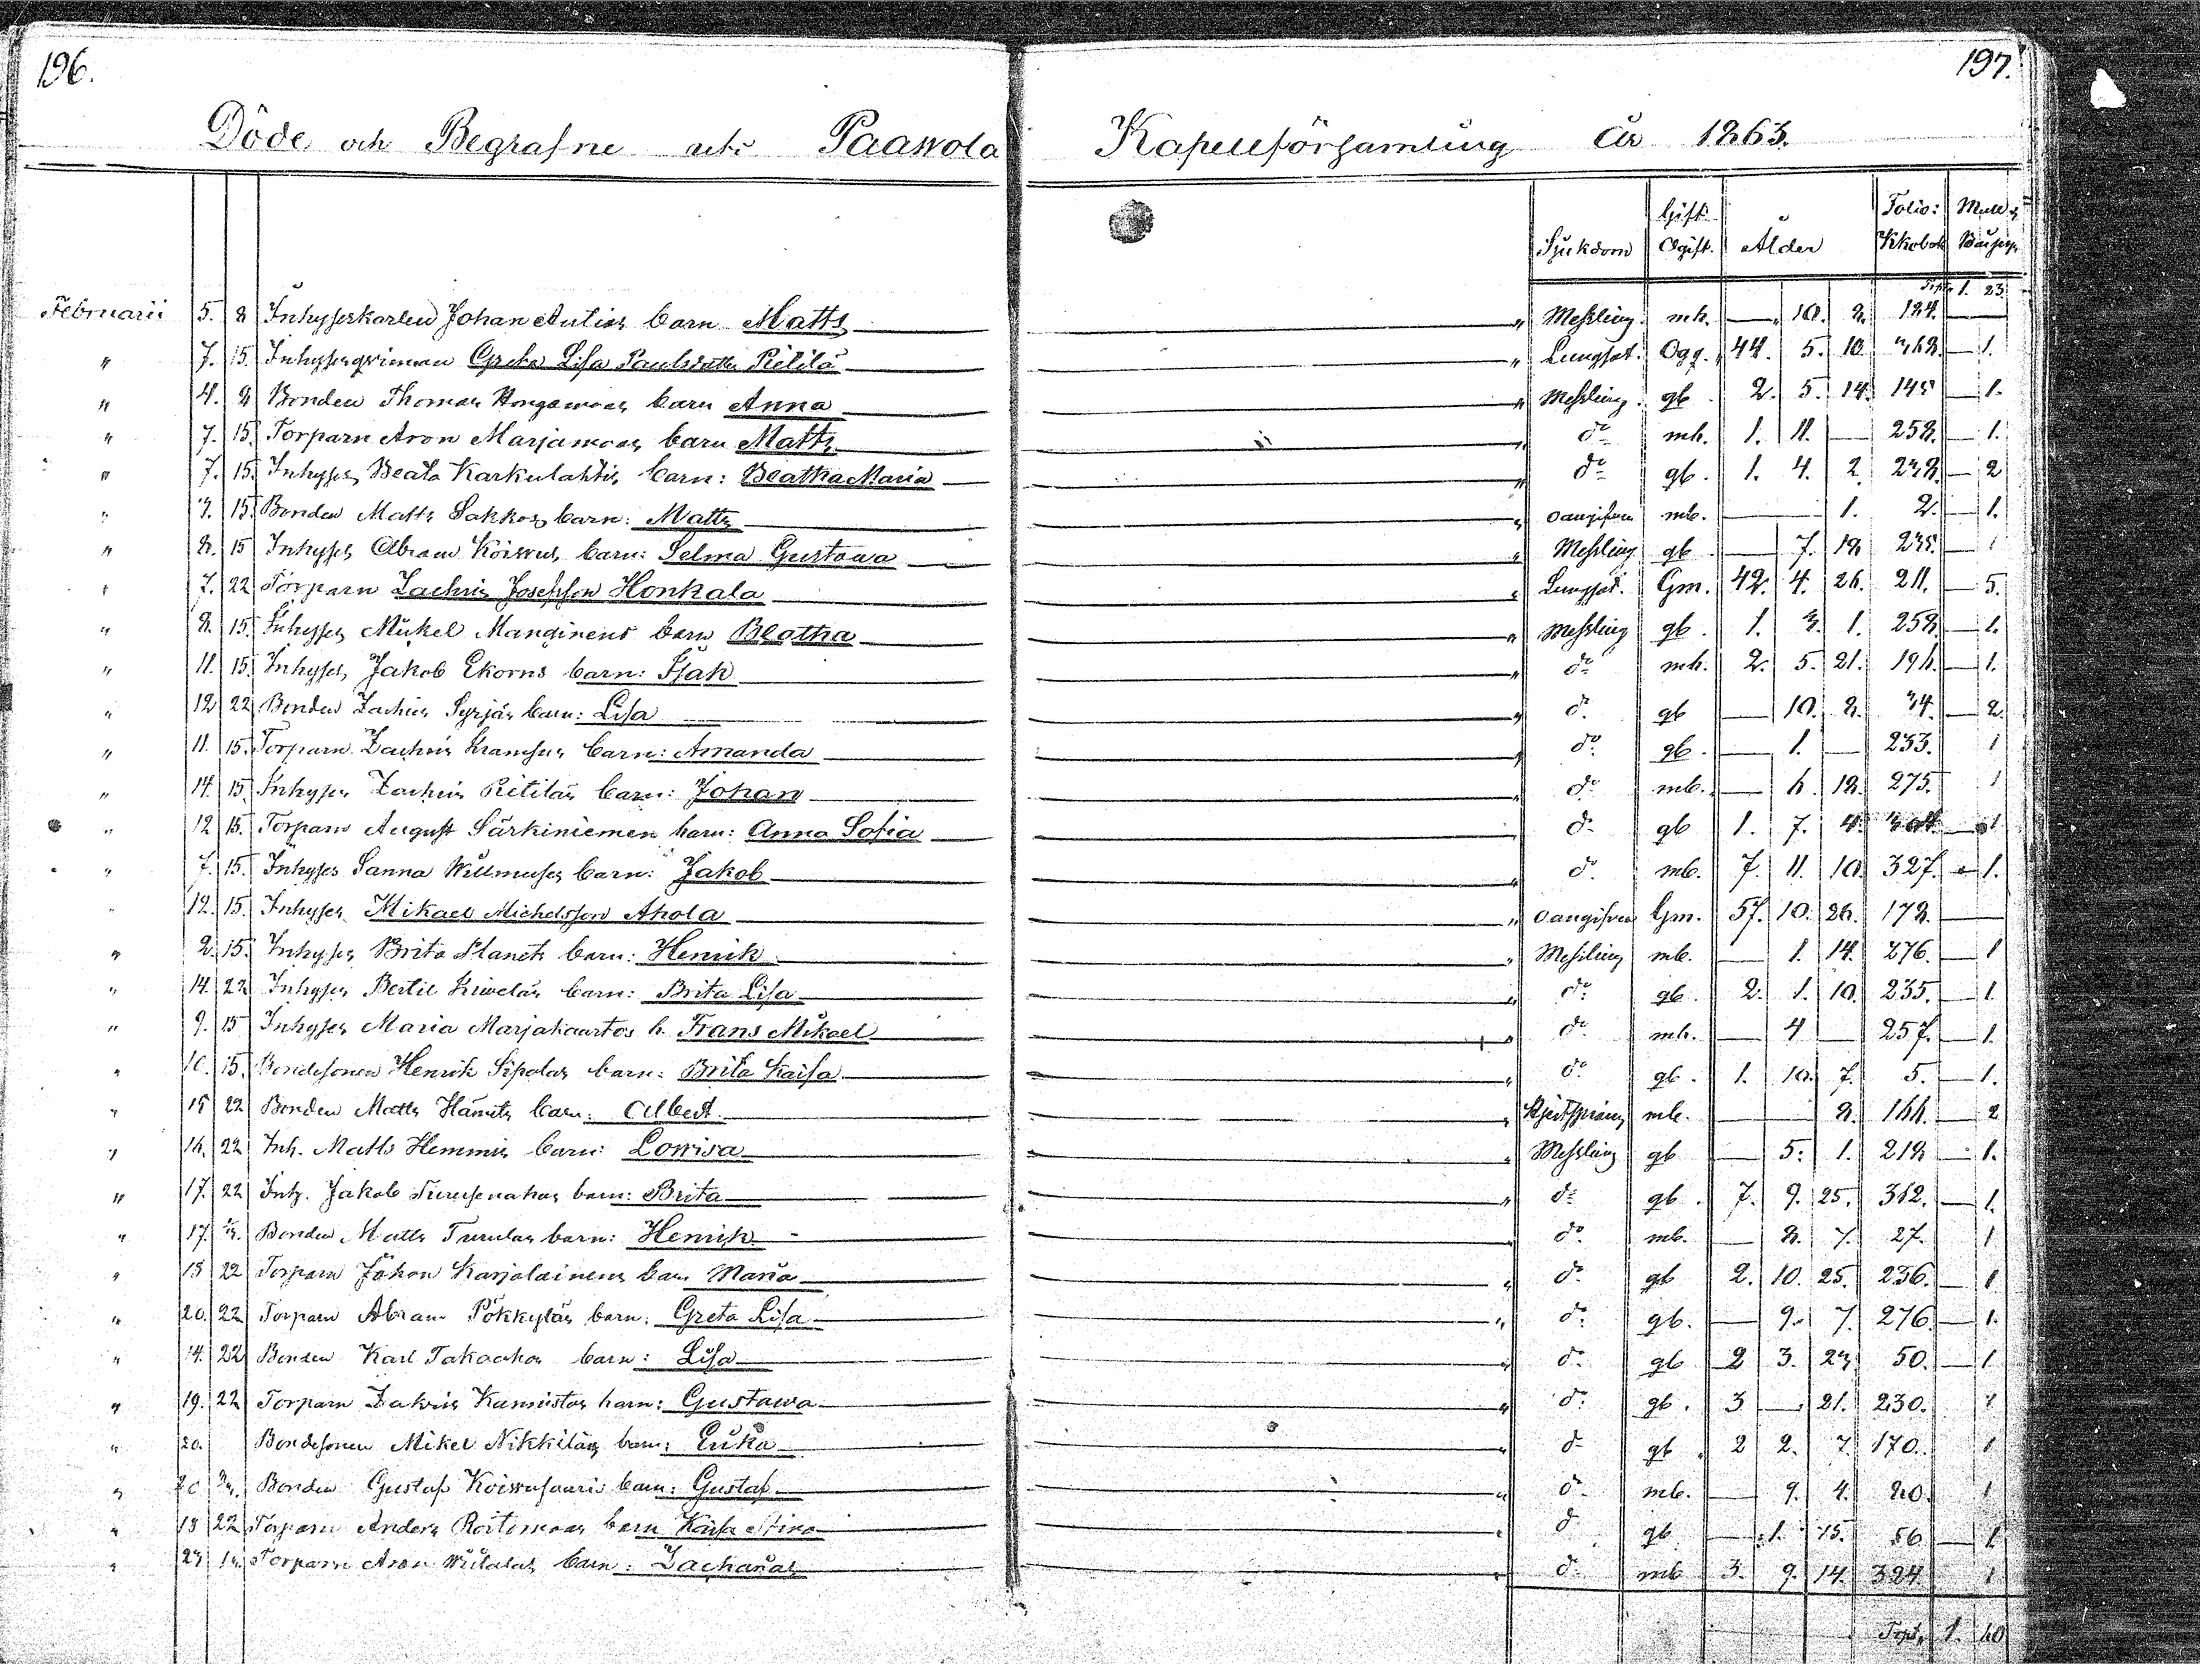 196.
197.
Döde och Begrafne uti Paawola Kapellförsamling År 1863.
Sjukdom Gift. Ogift. Ålder Folio: Kkobok
1. 23
Februarii 5. 8 Inhyseskarlen Johan Anttias barn Matts " Messling. mb. — 10. 2. 184. —
" 7. 15. Inhysesqvinnan Greta Lisa Paulsdotter Pietilä " Lungsot. Ogq. 44. 5. 10. 362. — 1.
" 4. 8 Bonden Thomas barn Anna " Messling. gb. 2. 5. 14. 145 — 1.
" 7. 15. Torparn Aron Marjamaas barn Matts " do mb. 1. 11. — 258. — 1.
" 7. 15. Inhyses Beata Karkulahtis barn: Beatha Maria " do gb. 1. 4. 2 238. — 2
" 7. 15 Bonden Matts Sakkos barn: Matts " oangifven mb. — 1. 2. — 1.
" 8. 15 Inhyses Abram Koiwus barn: Selma Gustawa " Messling gb — 7. 18 235. — 1
" 7. 22 Torparn Zachris Josefsson Honkala " Lungsot. Gm. 42. 4. 26. 211. — 5.
" 8. 15. Inhyses Mikel Manginens barn Beatha " Messling gb. 1. 3. 1. 258. — 1.
" 11. 15. Inhyses Jakob Ekorns barn: Isak " do mb. 2. 5. 21. 196. — 1.
" 12 22 Bonden Zachris Syrjäs barn: Lisa " do gb — 10. 2. 34. — 2
" 11. 15. Torparn Zachris barn: Amanda " do gb. — 1. — 233. 1
" 14. 15 Inhyses Zachris Pietiläs barn: Johan " do mb. — 6. 18. 275. 1
" 12 15. Torparn August Särkiniemen barn: Anna Sofia " do gb 1. 7. 4. — 1
" 7. 15. Inhyses Sanna barn: Jakob " do mb. 7. 11. 10. 327. — 1.
" 12. 15. Inhyses Mikael Michelsson Ahola " oangifven Gm. 57. 10. 26. 172. —
" 2. 15. Inhyses Brita Planets barn: Henrik " Messling mb. — 1. 14. 276. — 1
" 14. 22 Inhyses Bertil Kiweläs barn: Brita Lisa " do gb. 2. 1. 10. 235. — 1.
" 9. 15 Inhyses Maria b. Frans Mikael " do mb. — 4 — 257. — 1.
" 10. 15. Bondesonen Henrik Sipolas barn: Brita Kaisa " do gb. 1. 10. 7. 5. — 1.
" 15 22 Bonden Matts barn: Albert " mb. — 8. 166. — 2
" 16. 22 Inh. Matts Hemmis barn: Lowisa " Messling gb — 5. 1. 218 — 1.
" 17. 22 Inh. Jakob barn: Brita " do gb. 7. 9. 25. 312. — 1.
" 17. Bonden Matts barn: Henrik " do mb. — 8. 7. 27. 1
" 15 22 Torparn Johan Karjalainens barn Maria " do gb 2. 10. 25. 236. — 1
" 20. 22 Torparn Abram Pökkyläs barn: Greta Lisa " do gb. — 9. 7. 276. — 1.
" 14. 22 Bonden Karl Takaahos barn: Lisa " do gb 2 3. 23 50. — 1
" 19. 22 Torparn Zakris Kannistos barn: Gustawa " do gb. 3 — 21. 230. 1
" 20. Bondesonen Mikel Nikkiläs barn: Erika " do gb. 2 2. 7. 170. 1
" 20 Bonden Gustaf Koiwusaaris barn: Gustaf " do mb. — 9. 4. 20. 1
" 13 22 Torparn Anders barn Kaisa Stina " do gb — 1. 15. 56 — 1
" 23 Torparn Aron barn: Zacharias " do mb 3. 9. 14. 324. 1
1. 60